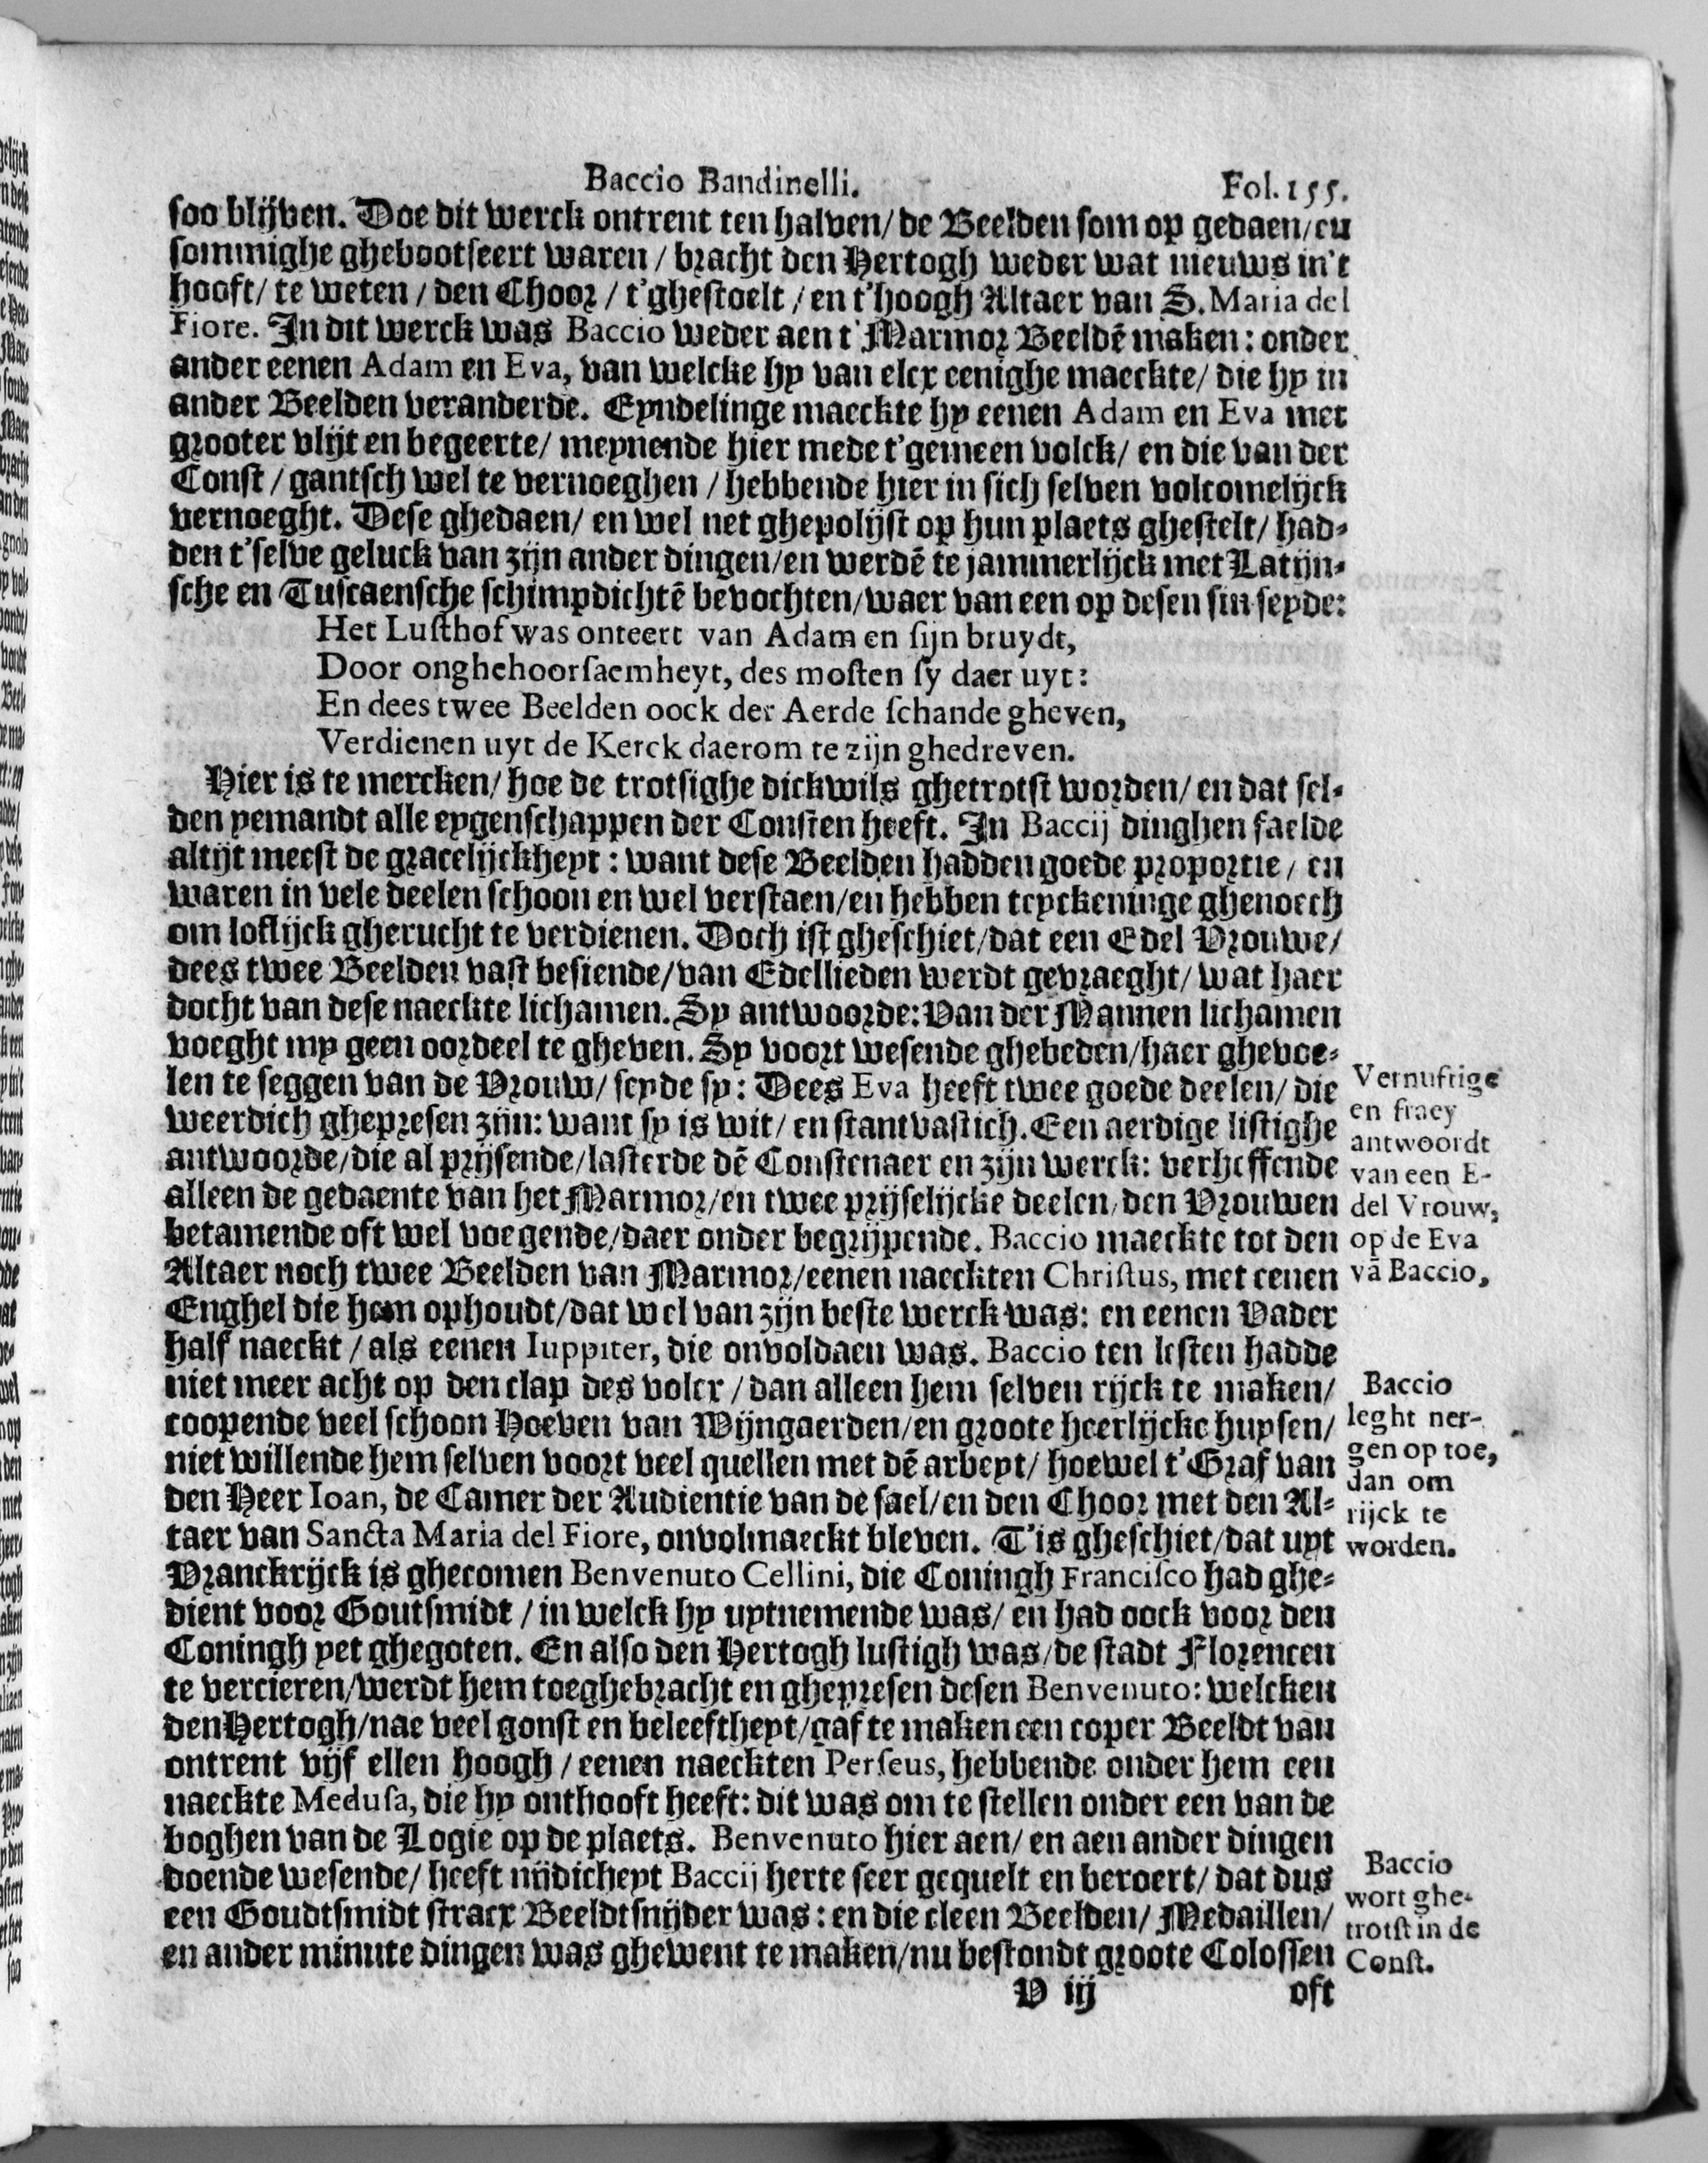 Baccio Bandinelli. Fol. 155.
soo blijven. Doe dit werck ontrent ten halven/ de Beelden som op gedaen/ en
sommighe ghebootseert waren / bracht den Hertogh weder wat nieuws in't
hooft/ te weten / den Choor / t'ghestoelt / en t'hoogh Altaer van S. Maria del
Fiore. In dit werck was Baccio weder aen t'Marmor Beeldē maken: onder
ander eenen Adam en Eva, van welcke hy van elcx eenighe maeckte/ die hy in
ander Beelden veranderde. Eyndelinge maeckte hy eenen Adam en Eva met
grooter vlijt en begeerte/ meynende hier mede t'gemeen volck/ en die van der
Const / gantsch wel te vernoeghen / hebbende hier in sich selven volcomelijck
vernoeght. Dese ghedaen/ en wel net ghepolijst op hun plaets ghestelt/ had-
den t'selve geluck van zijn ander dingen/en werdē te jammerlijck met Latijn-
sche en Tuscaensche schimpdichtē bevochten/waer van een op desen sin seyde:
Het Lusthof was onteert van Adam en sijn bruydt,
Door onghehoorsaemheyt, des mosten sy daer uyt:
En dees twee Beelden oock der Aerde schande gheven,
Verdienen uyt de Kerck daerom te zijn ghedreven.
Hier is te mercken/ hoe de trotsighe dickwils ghetrotst worden/ en dat sel-
den yemandt alle eygenschappen der Consten heeft. In Baccij dinghen faelde
altijt meest de gracelijckheyt: want dese Beelden hadden goede proportie / en
waren in vele deelen schoon en wel verstaen/en hebben teyckeninge ghenoech
om loflijck gherucht te verdienen. Doch ist gheschiet/dat een Edel Vrouwe/
dees twee Beelden vast besiende/van Edellieden werdt gevraeght/ wat haer
docht van dese naeckte lichamen. Sy antwoorde: Van der Mannen lichamen
voeght my geen oordeel te gheven. Sy voort wesende ghebeden/haer ghevoe-
len te seggen van de Vrouw/ seyde sy: Dees Eva heeft twee goede deelen/ die
weerdich ghepresen zijn: want sy is wit/ en stantvastich. Een aerdige listighe
antwoorde/die al prijsende/lasterde dē Constenaer en zijn werck: verheffende
alleen de gedaente van het Marmor/en twee prijselijcke deelen/den Vrouwen
betamende oft wel voegende/daer onder begrijpende. Baccio maeckte tot den
Altaer noch twee Beelden van Marmor/eenen naeckten Christus, met eenen
Enghel die hem ophoudt/dat wel van zijn beste werck was: en eenen Vader
half naeckt / als eenen Iuppiter, die onvoldaen was. Baccio ten lesten hadde
niet meer acht op den clap des volcx / dan alleen hem selven rijck te maken/
coopende veel schoon Hoeven van Wijngaerden/en groote heerlijcke huysen/
niet willende hem selven voort veel quellen met dē arbeyt/ hoewel t'Graf van
den Heer Ioan, de Camer der Audientie van de sael/en den Choor met den Al-
taer van Sancta Maria del Fiore, onvolmaeckt bleven. T'is gheschiet/dat uyt
Vranckrijck is ghecomen Benvenuto Cellini, die Coningh Francisco had ghe-
dient voor Goutsmidt / in welck hy uytnemende was/ en had oock voor den
Coningh yet ghegoten. En also den Hertogh lustigh was/de stadt Florencen
te vercieren/werdt hem toeghebracht en ghepresen desen Benvenuto: welcken
den Hertogh/nae veel gonst en beleeftheyt/gaf te maken een coper Beeldt van
ontrent vijf ellen hoogh / eenen naeckten Perseus, hebbende onder hem een
naeckte Medusa, die hy onthooft heeft: dit was om te stellen onder een van de
boghen van de Logie op de plaets. Benvenuto hier aen/ en aen ander dingen
doende wesende/ heeft nijdicheyt Baccij herte seer gequelt en beroert/ dat dus
een Goudtsmidt stracx Beeldtsnijder was: en die cleen Beelden/ Medaillen/
en ander minute dingen was ghewent te maken/nu bestondt groote Colossen
V iij oft
Vernuftige
en fraey
antwoordt
van een E-
del Vrouw,
op de Eva
vā Baccio,
Baccio
leght ner-
gen op toe,
dan om
rijck te
worden.
Baccio
wort ghe-
trotst in de
Const.